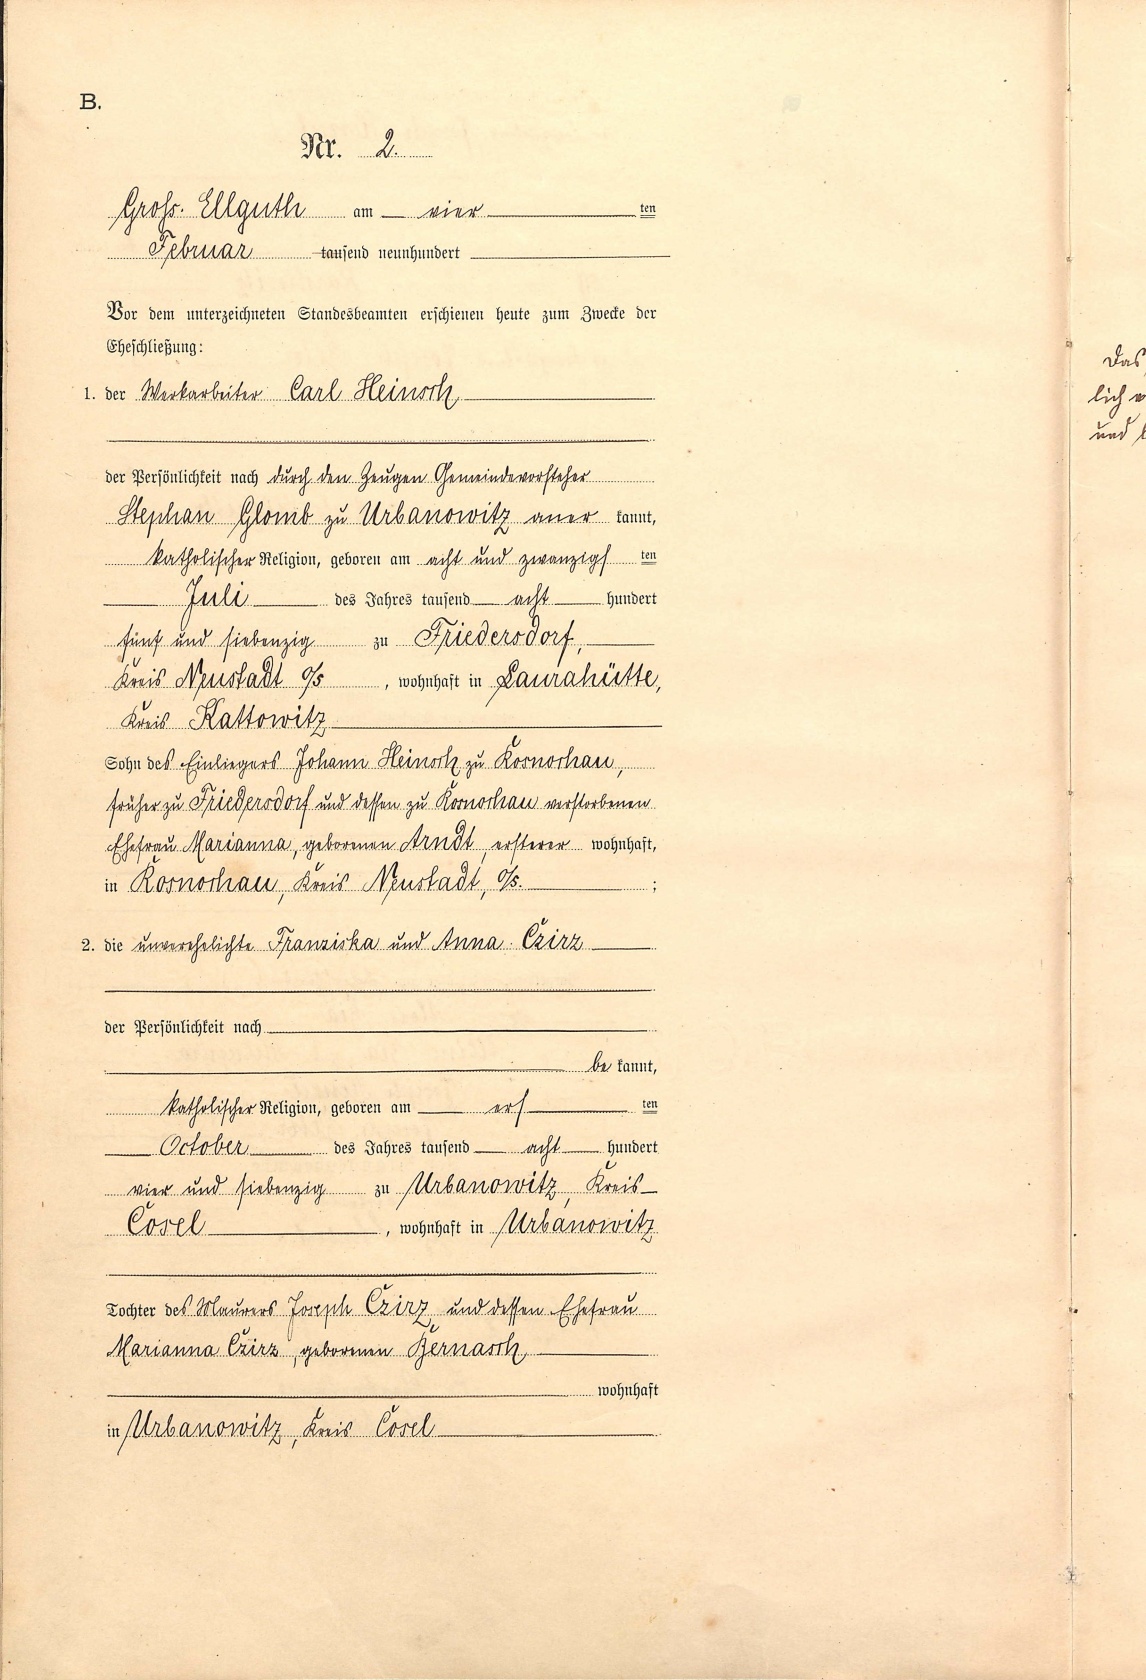 B.
Nr. 2.
Gross. Ellguth am vier ten
Februar tausend neunhundert
Vor dem unterzeichneten Standesbeamten erschienen heute zum Zwecke der
Eheschließung:
1. der Werkarbeiter Carl Heinsch
der Persönlichkeit nach durch den Zeugen Gemeindevorsteher
Stephan Glomb zu Urbanowitz aner kannt,
katholischer Religion, geboren am acht und zwanzigs ten
Juli des Jahres tausend acht hundert
fünf und siebenzig zu Friedersdorf,
Kreis Neustadt O/S , wohnhaft in Laurahütte,
Kreis Kattowitz
Sohn des Einliegers Johann Heinsch zu Kosnochau,
früher zu Friedersdorf und dessen zu Kosnochau verstorbenen
Ehefrau Marianna, geborenen Arndt, ersterer wohnhaft,
in Kosnochau, Kreis Neustadt, O/S. ;
2. die unverehelichte Franziska und Anna Czirz
der Persönlichkeit nach
be kannt,
katholischer Religion, geboren am ers ten
October des Jahres tausend acht hundert
vier und siebenzig zu Urbanowitz, Kreis
Cosel , wohnhaft in Urbanowitz
Tochter des Maurers Joseph Czirz und dessen Ehefrau
Marianna Czirz, geborenen Bernasch
wohnhaft
in Urbanowitz, Kreis Cosel
Das
lich
und